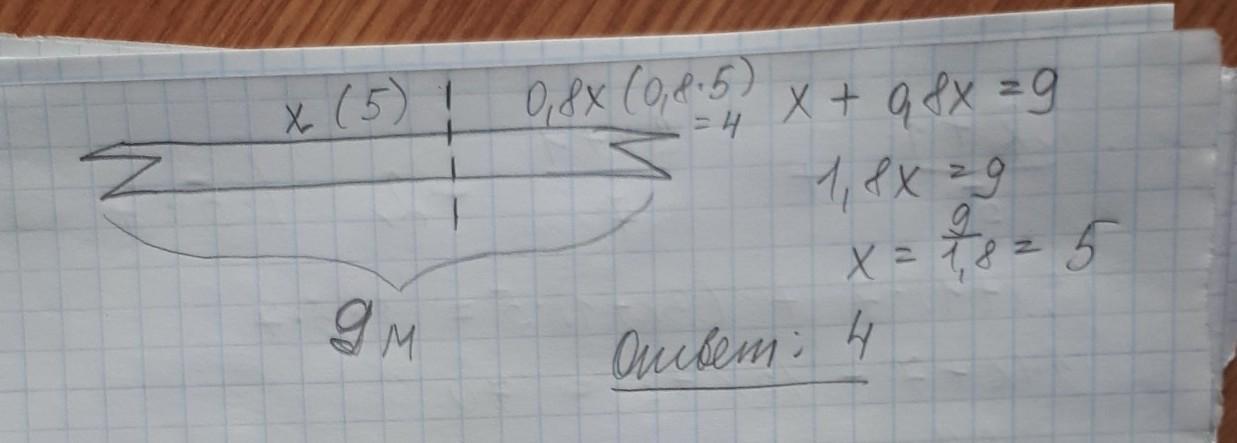 x (5)
0,8x (0,8·5)
= 4
x + 0,8x = 9
1,8x = 9
x = 9/1,8 = 5
9 м
Ответ: 4